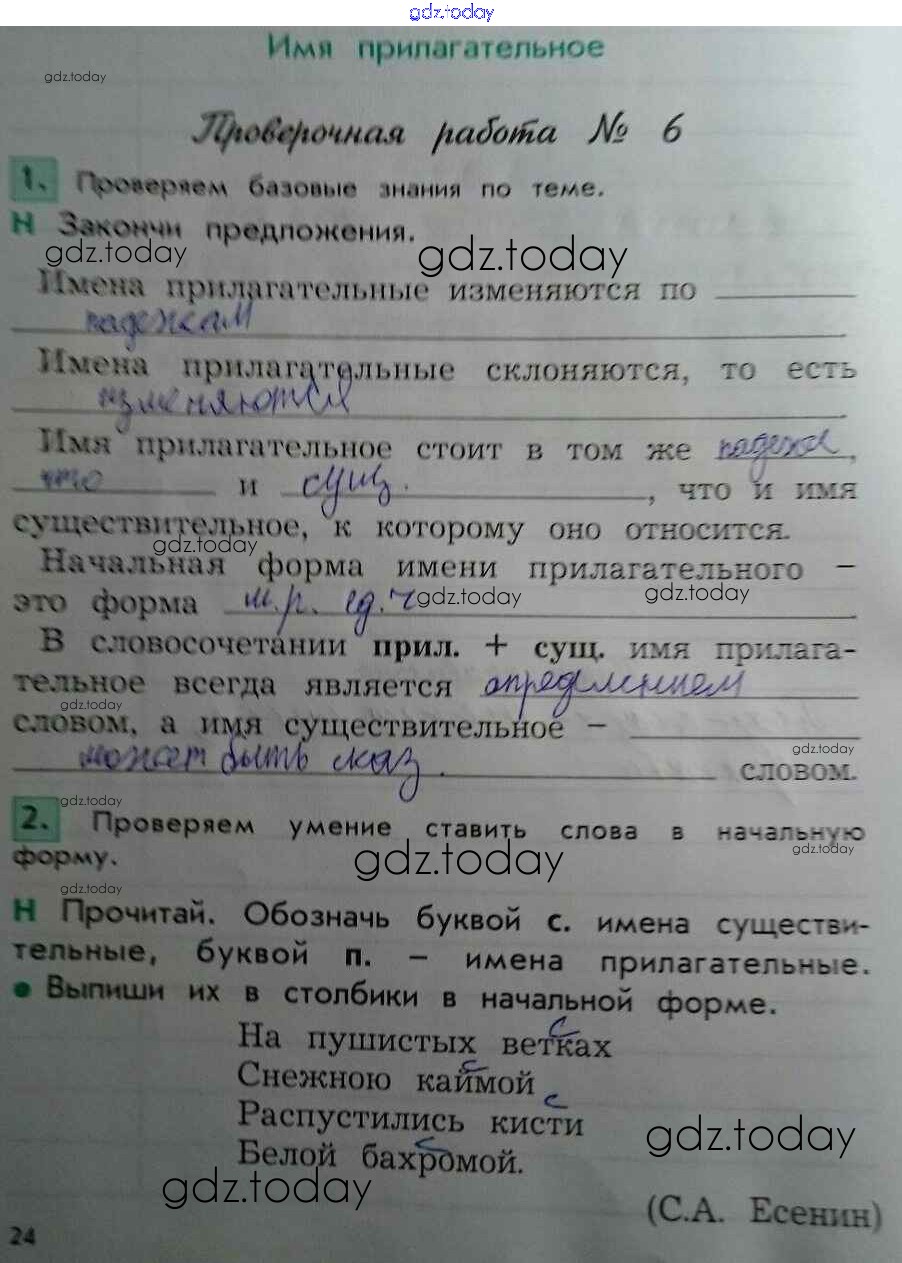 gdz.today
Имя прилагательное
gdz.today
Проверочная работа № 6
1. Проверяем базовые знания по теме.
Н Закончи предложения.
gdz.today gdz.today
Имена прилагательные изменяются по
падежам
Имена прилагательные склоняются, то есть
изменяются
Имя прилагательное стоит в том же падеже,
что и сущ. , что и имя
существительное, к которому оно относится.
gdz.today
Начальная форма имени прилагательного –
это форма м.р. ед.ч gdz.today gdz.today
В словосочетании прил. + сущ. имя прилага-
тельное всегда является определением
gdz.today
словом, а имя существительное –
gdz.today
может быть сказ. словом.
gdz.today
2. Проверяем умение ставить слова в начальную
форму. gdz.today gdz.today
gdz.today
Н Прочитай. Обозначь буквой с. имена существи-
тельные, буквой п. – имена прилагательные.
• Выпиши их в столбики в начальной форме.
с
На пушистых ветках
с
Снежною каймой
с
Распустились кисти
с
Белой бахромой.
gdz.today
gdz.today
(С.А. Есенин)
24